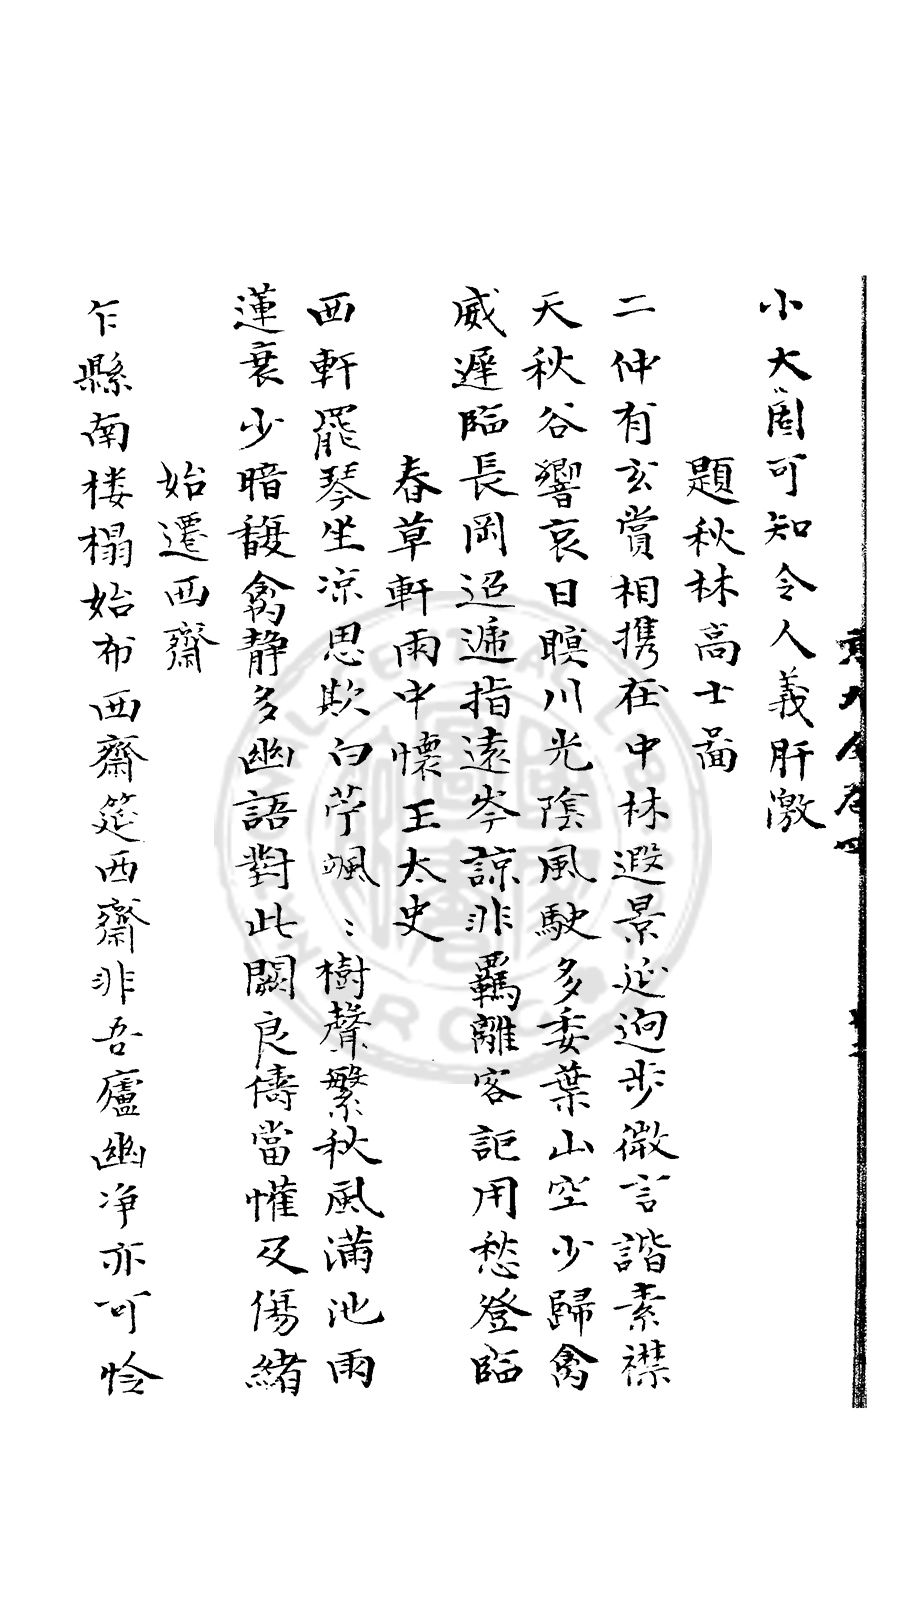 小大固可知令人義肝激
題秋林高士啚
二仲有玄賞相携在中林遐景延逈步微言諧素襟
天秋谷響哀日暝川光陰風駛多委葉山空少歸禽
威遲臨長岡迢遞指遠岑諒非羈離客詎用愁登臨
春草軒雨中懷王太史
西軒罷琴坐凉思欺白苧颯〻樹聲繁秋風滿池雨
蓮衰少暗馥禽静多幽語對此闕良儔當懽及傷緒
始遷西齋
乍縣南楼榻始布西齋筵西齋非吾廬幽净亦可怜